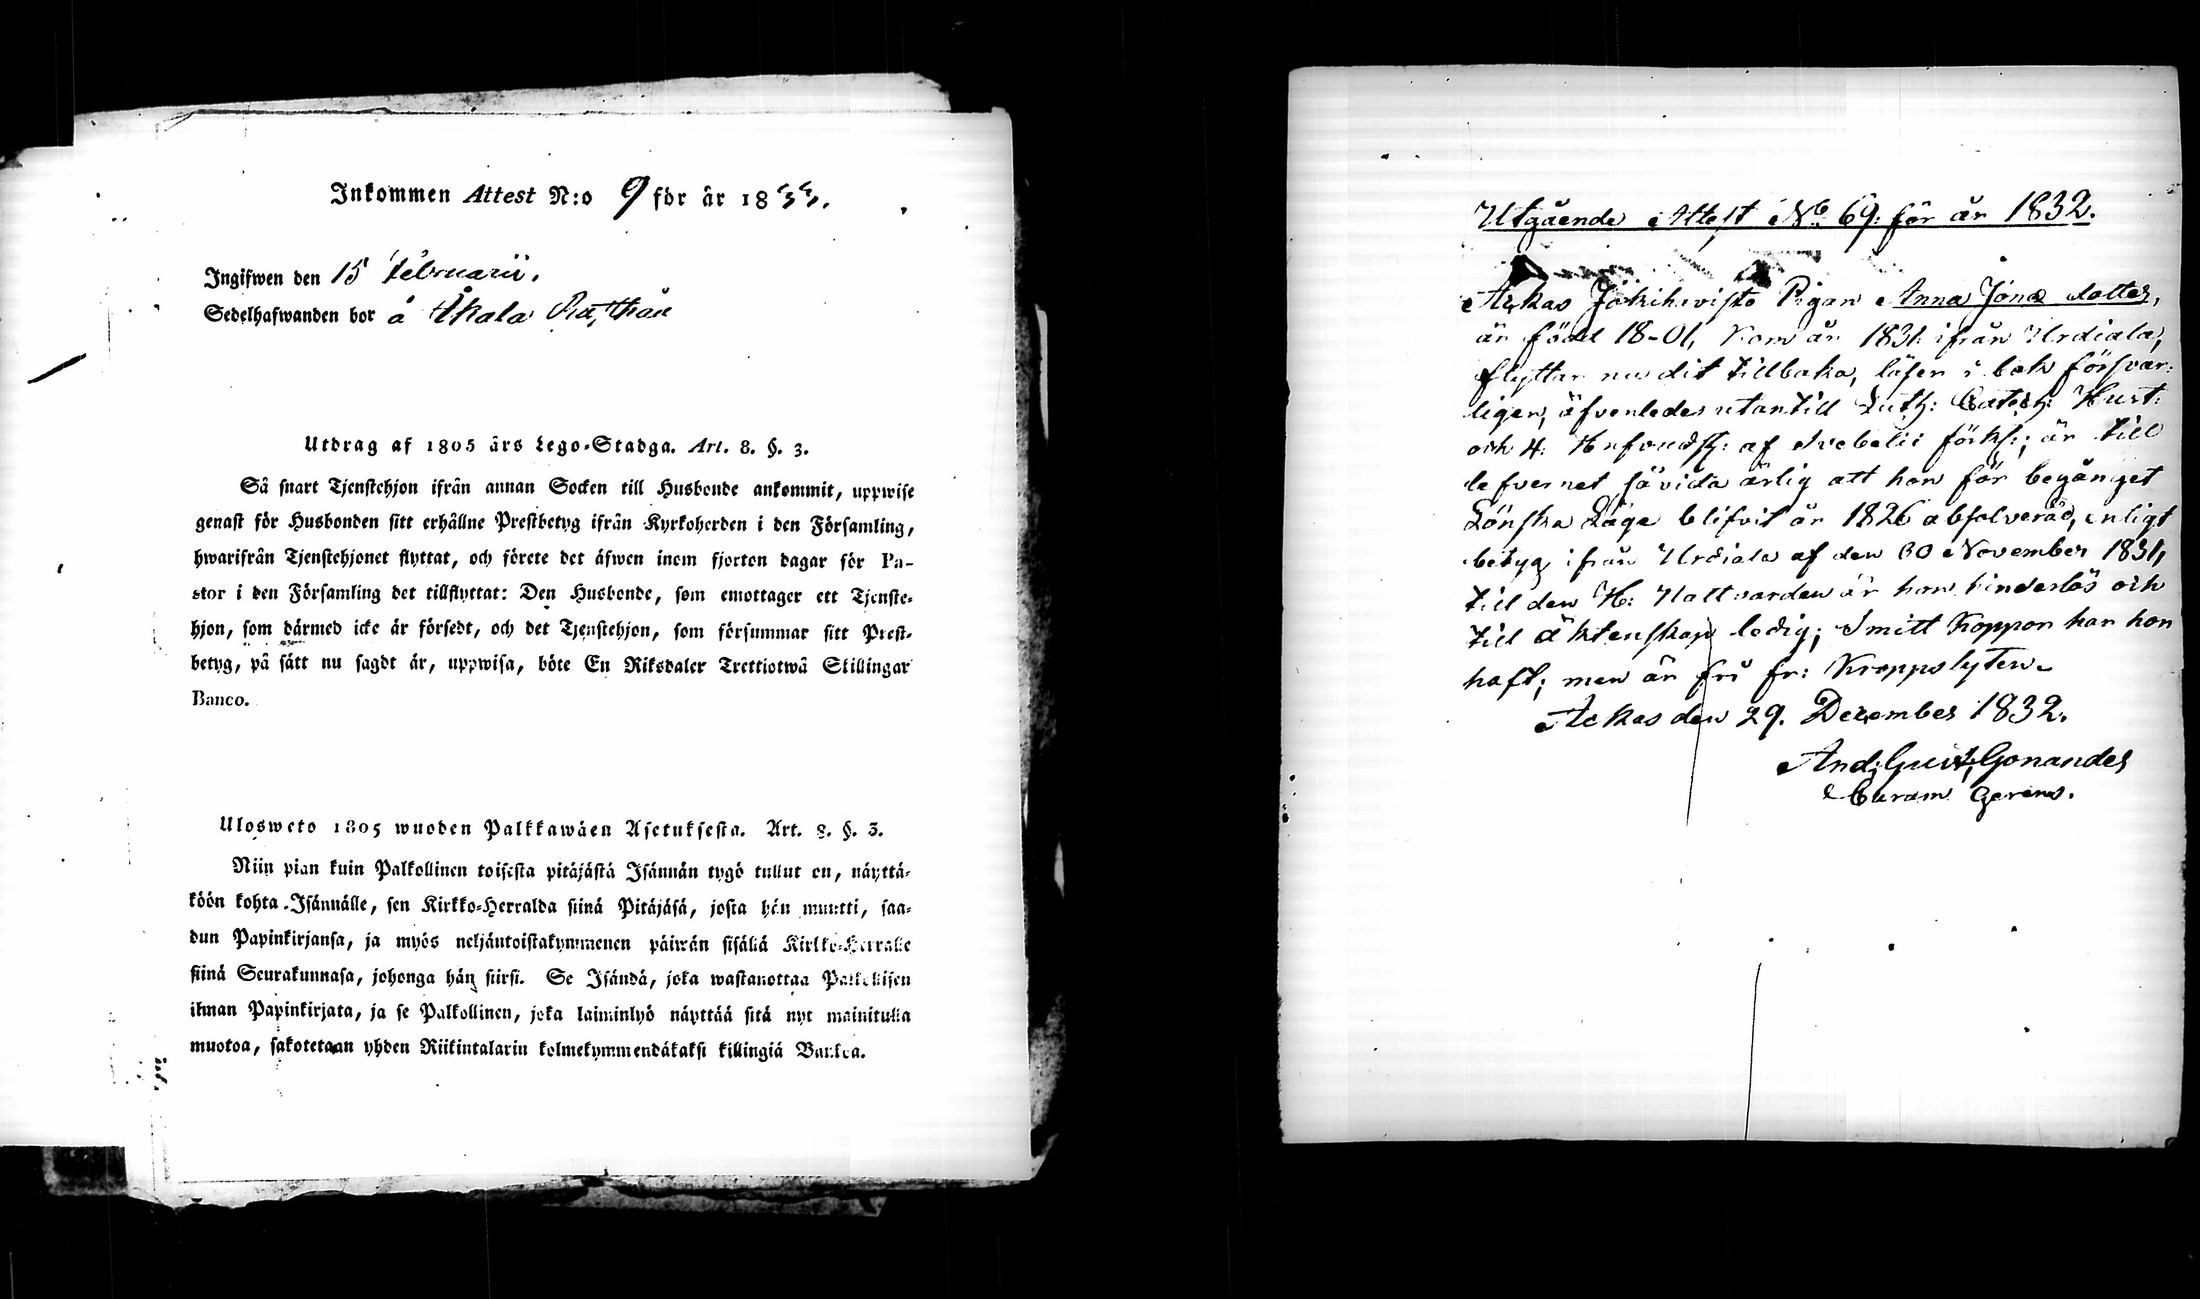 Inkommen Attest N:o 9 för år 1833.
Ingifwen den 15 Februarii.
Sedelhafwanden bor å Åkala
Utdrag af 1805 års Lego-Stadga. Art. 8. §. 3.
Så snart Tjenstehjon ifrån annan Socken till Husbonde ankommit, uppwise
genast för Husbonden sitt erhållne Prestbetyg ifrån Kyrkoherden i den Församling,
hwarifrån Tjenstehjonet flyttat, och förete det äfwen inom fjorton dagar för Pa-
stor i den Församling det tillflyttat: Den Husbonde, som emottager ett Tjenste-
hjon, som därmed icke är försedt, och det Tjenstehjon, som försummar sitt Prest-
betyg, på sätt nu sagdt är, uppwisa, böte En Riksdaler Trettiotwå Skillingar
Banco.
Ulosweto 1805 wuoden Palkkawäen Asetuksesta. Art. 8. §. 3.
Niin pian kuin Palkollinen toisesta pitäjästä Isännän tygö tullut on, näyttä-
köön kohta Isännälle, sen Kirkko-Herralda siinä Pitäjäsä, josta hän muutti, saa-
dun Papinkirjansa, ja myös neljäntoistakymmenen päiwän sisällä Kirkko-Herralle
siinä Seurakunnasa, johonga hän siirsi. Se Isändä, joka wastanottaa Palkollisen
ilman Papinkirjata, ja se Palkollinen, joka laiminlyö näyttää sitä nyt mainitulla
muotoa, sakotetaan yhden Riikintalarin kolmekymmendäkaksi killingiä Bankoa.
Utgående Attest No 69. för år 1832.
Ackas Pigan Anna Jonæ dotter,
är född 18-01, kom år 1831 ifrån Urdiala,
flyttar nu dit tillbaka, läser i bok försvar-
ligen, äfvenledes utantill Luth: Catech: Hust:
och H: af Svebelii förkl:; är till
lefvernet såvida ärlig att hon för begånget
Lönska Läge blifvit år 1826 absolverad, enligt
betyg ifrån Urdiala af den 30 November 1831,
till den H: Nattvarden är hon hinderlös och
till äktenskap ledig; Smitt Koppor har hon
haft; men är fri fr: Kroppslyten.
Ackas den 29. December 1832.
And: Gust: Gonander
Curam Gerens.